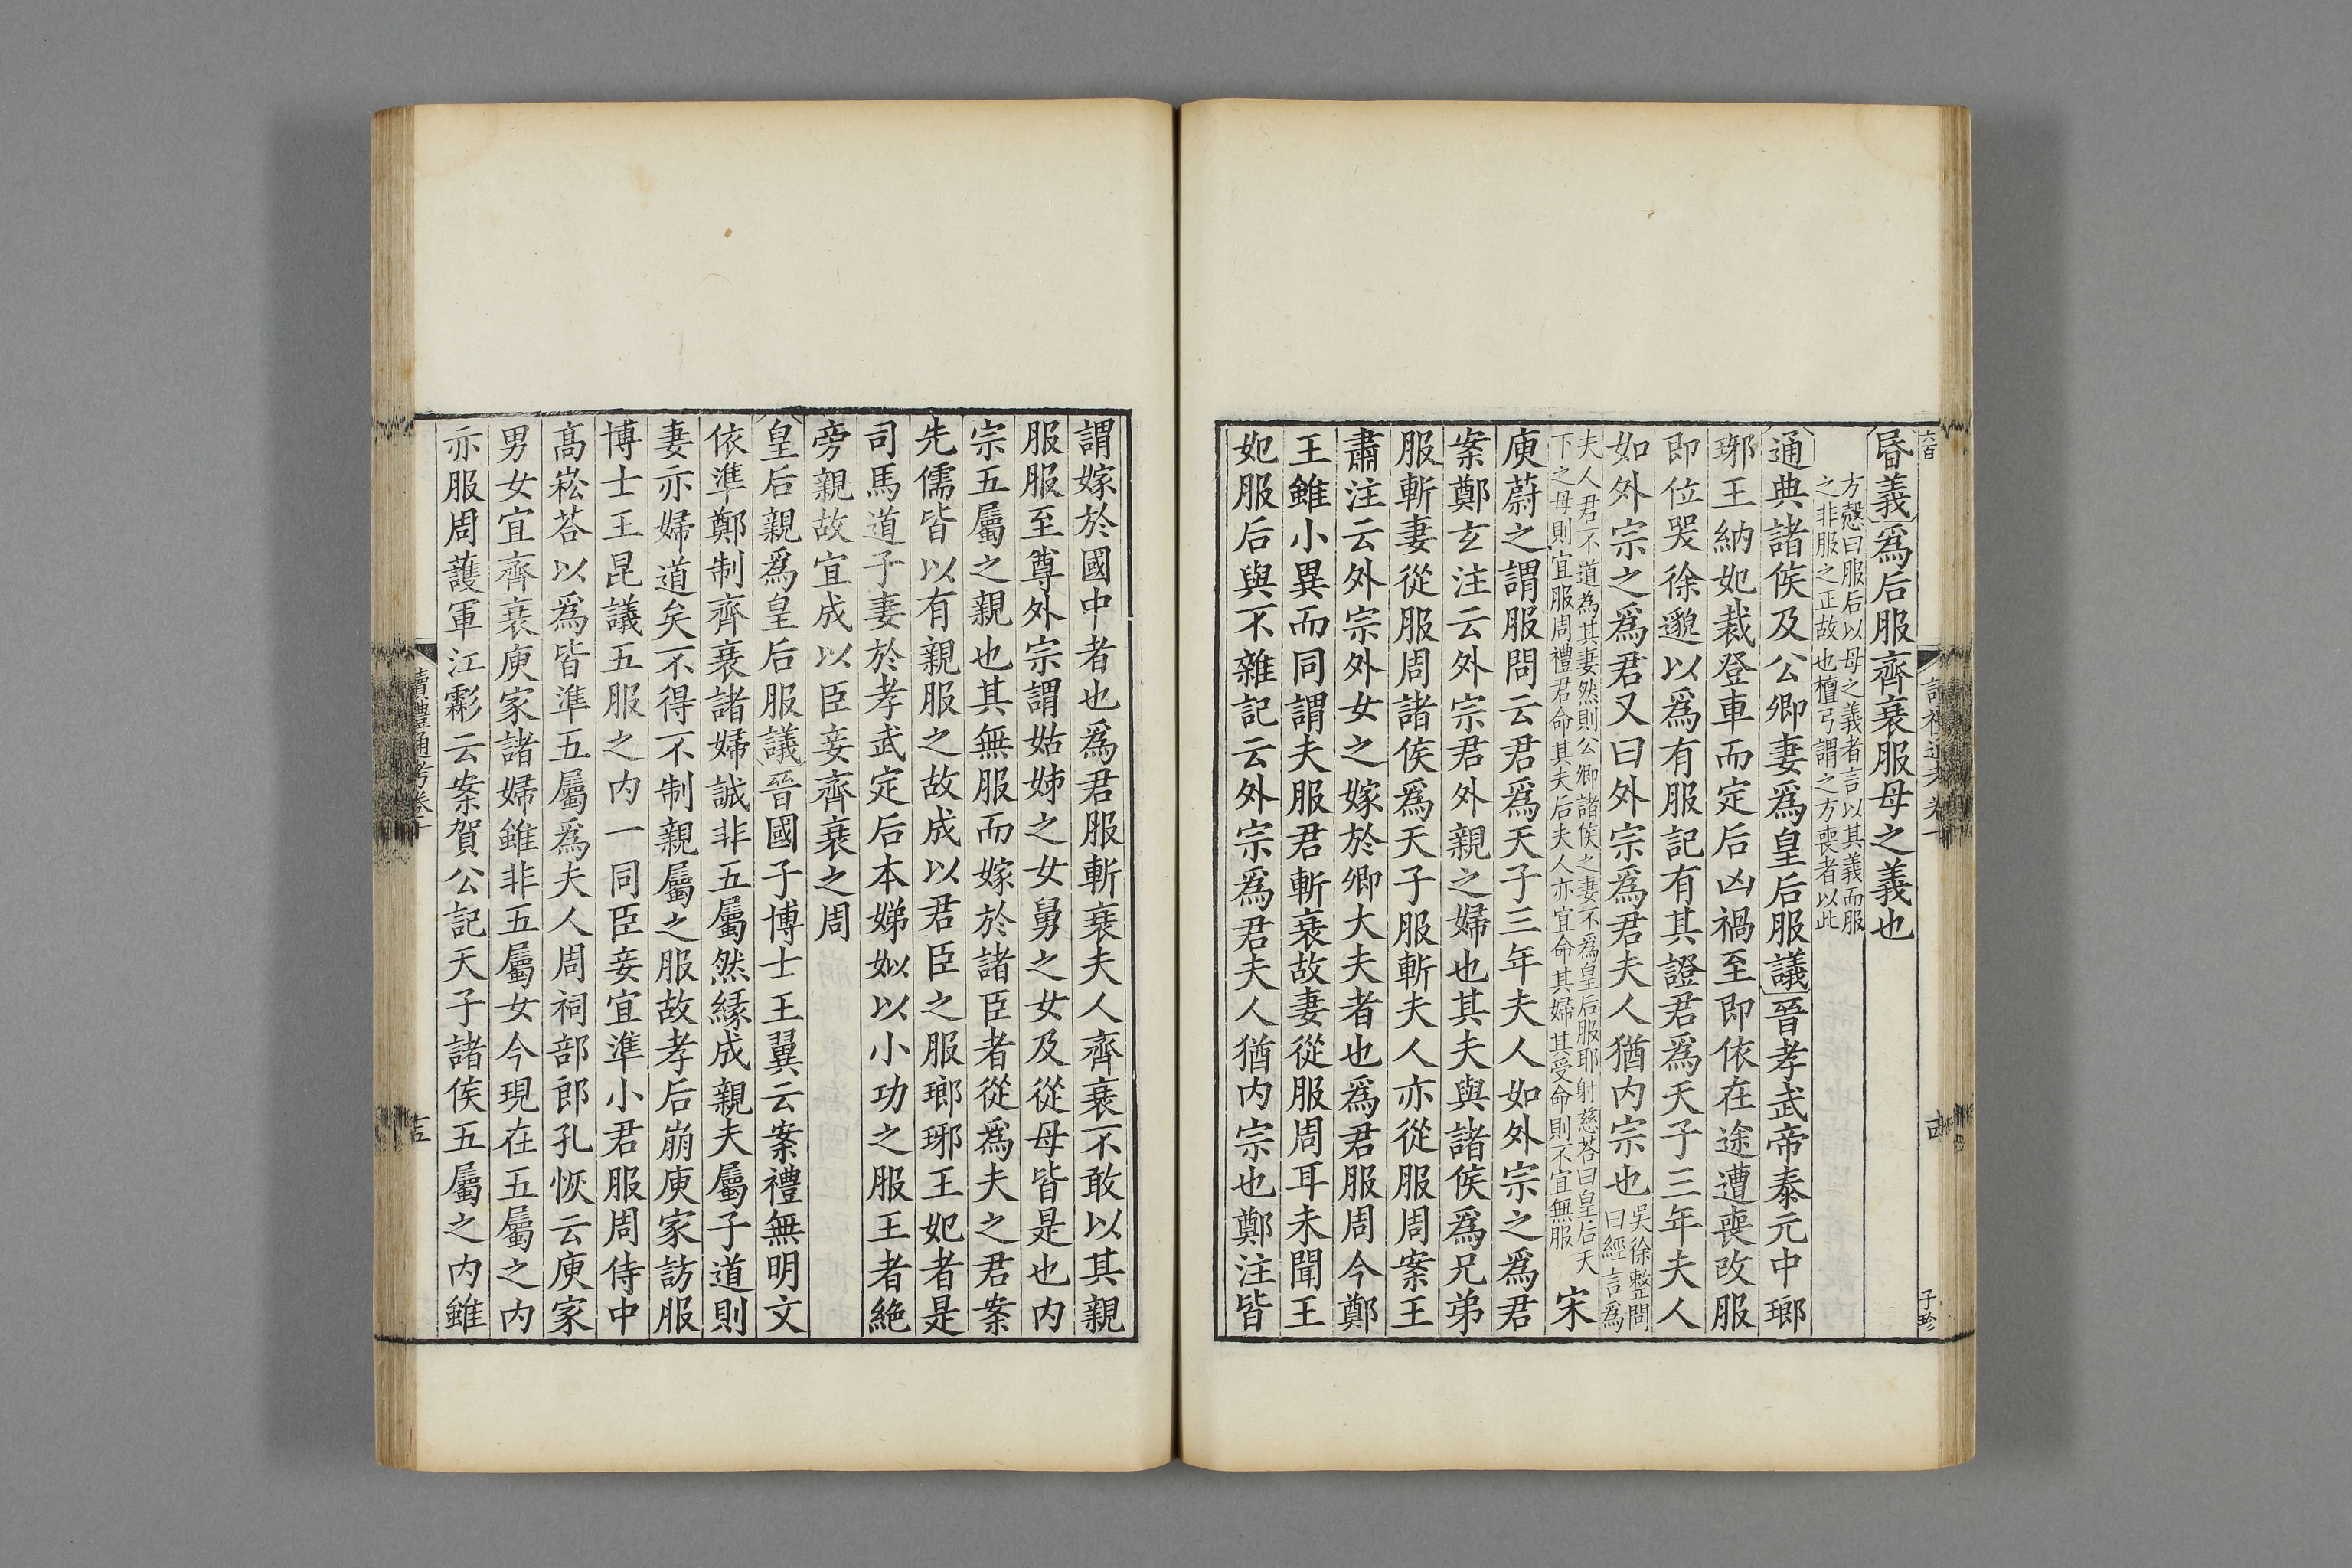 昏義爲后服齊衰服母之義也
方愨曰服后以母之義者言以其義而服
之非服之正故也檀弓謂之方喪者以此
通典諸侯及公卿妻爲皇后服議晉孝武帝泰元中瑯
琊王納妃裁登車而定后凶禍至即依在途遭喪改服
即位哭徐邈以爲有服記有其證君爲天子三年夫人
如外宗之爲君又曰外宗爲君夫人猶内宗也
吳徐整問
曰經言爲
夫人君不道為其妻然則公卿諸侯之妻不爲皇后服耶射慈荅曰皇后天
下之母則宜服周禮君命其夫后夫人亦宜命其婦其受命則不宜無服
宋
庾蔚之謂服問云君爲天子三年夫人如外宗之爲君
案鄭玄注云外宗君外親之婦也其夫與諸侯爲兄弟
服斬妻從服周諸侯爲天子服斬夫人亦從服周案王
肅注云外宗外女之嫁於卿大夫者也爲君服周今鄭
王雖小異而同謂夫服君斬衰故妻從服周耳未聞王
妃服后與不雜記云外宗爲君夫人猶内宗也鄭注皆
謂嫁於國中者也爲君服斬衰夫人齊衰不敢以其親
服服至尊外宗謂姑姊之女舅之女及從母皆是也内
宗五屬之親也其無服而嫁於諸臣者從爲夫之君案
先儒皆以有親服之故成以君臣之服瑯琊王妃者是
司馬道子妻於孝武定后本娣姒以小功之服王者絶
旁親故宜成以臣妾齊衰之周
皇后親爲皇后服議晉國子博士王翼云案禮無明文
依準鄭制齊衰諸婦誠非五屬然緣成親夫屬子道則
妻亦婦道矣不得不制親屬之服故孝后崩庾家訪服
博士王昆議五服之内一同臣妾宜準小君服周侍中
高崧荅以爲皆準五屬爲夫人周祠部郎孔恢云庾家
男女宜齊衰庾家諸婦雖非五屬女今現在五屬之内
亦服周護軍江虨云案賀公記天子諸侯五屬之内雖
讀禮通考卷十